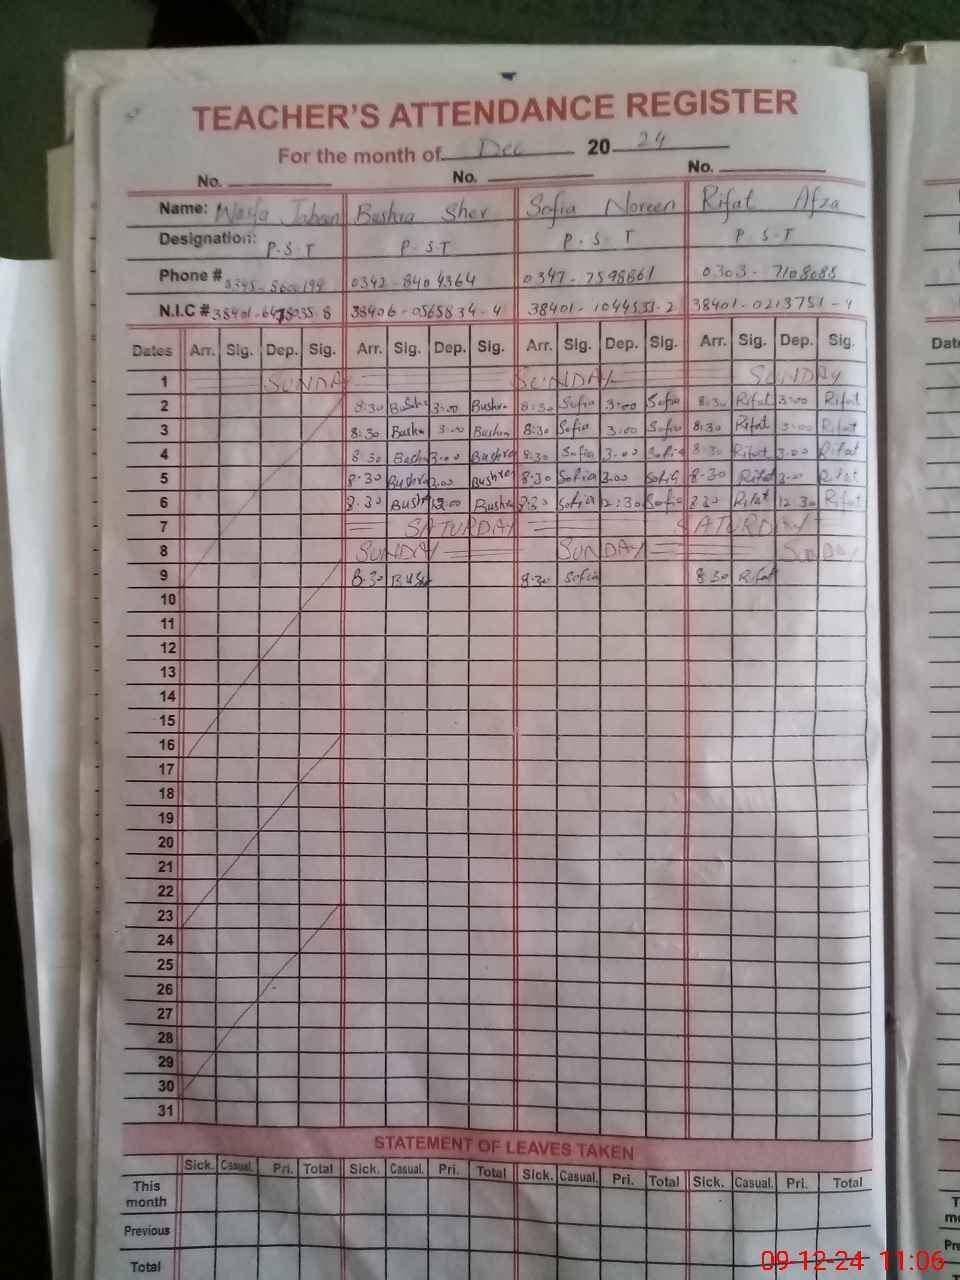 TEACHER'S ATTENDANCE REGISTER
For the month of Dec 20 24
No. No. No.
Name: Jabeen Bushra Sher Sofia Noreen Rifat Afza
Designation: P.S.T P.S.T P.S.T P.S.T
Phone # 0342-8404364 0347-7598661 0303-7108088
N.I.C # 38406-0565834-4 38401-1044533-2 38401-0213751-4
Dates Arr. Sig. Dep. Sig. Arr. Sig. Dep. Sig. Arr. Sig. Dep. Sig. Arr. Sig. Dep. Sig.
1 SUNDAY SUNDAY SUNDAY
2 8:30 Bushra 3:00 Bushra 8:30 Sofia 3:00 Sofia 8:30 Rifat 3:00 Rifat
3 8:30 Bushra 3:00 Bushra 8:30 Sofia 3:00 Sofia 8:30 Rifat 3:00 Rifat
4 8:30 Bushra 3:00 Bushra 8:30 Sofia 3:00 Sofia 8:30 Rifat 3:00 Rifat
5 8:30 Bushra 3:00 Bushra 8:30 Sofia 3:00 Sofia 8:30 Rifat 3:00 Rifat
6 8:30 Bushra 12:00 Bushra 8:30 Sofia 12:30 Sofia 8:30 Rifat 12:30 Rifat
7 SATURDAY SATURDAY
8 SUNDAY SUNDAY SUNDAY
9 8:30 8:30 Sofia 8:30 Rifat
10
11
12
13
14
15
16
17
18
19
20
21
22
23
24
25
26
27
28
29
30
31
STATEMENT OF LEAVES TAKEN
Sick. Casual. Pri. Total Sick. Casual. Pri. Total Sick. Casual. Pri. Total Sick. Casual. Pri. Total
This
month
Previous
Total
09-12-24 11:06